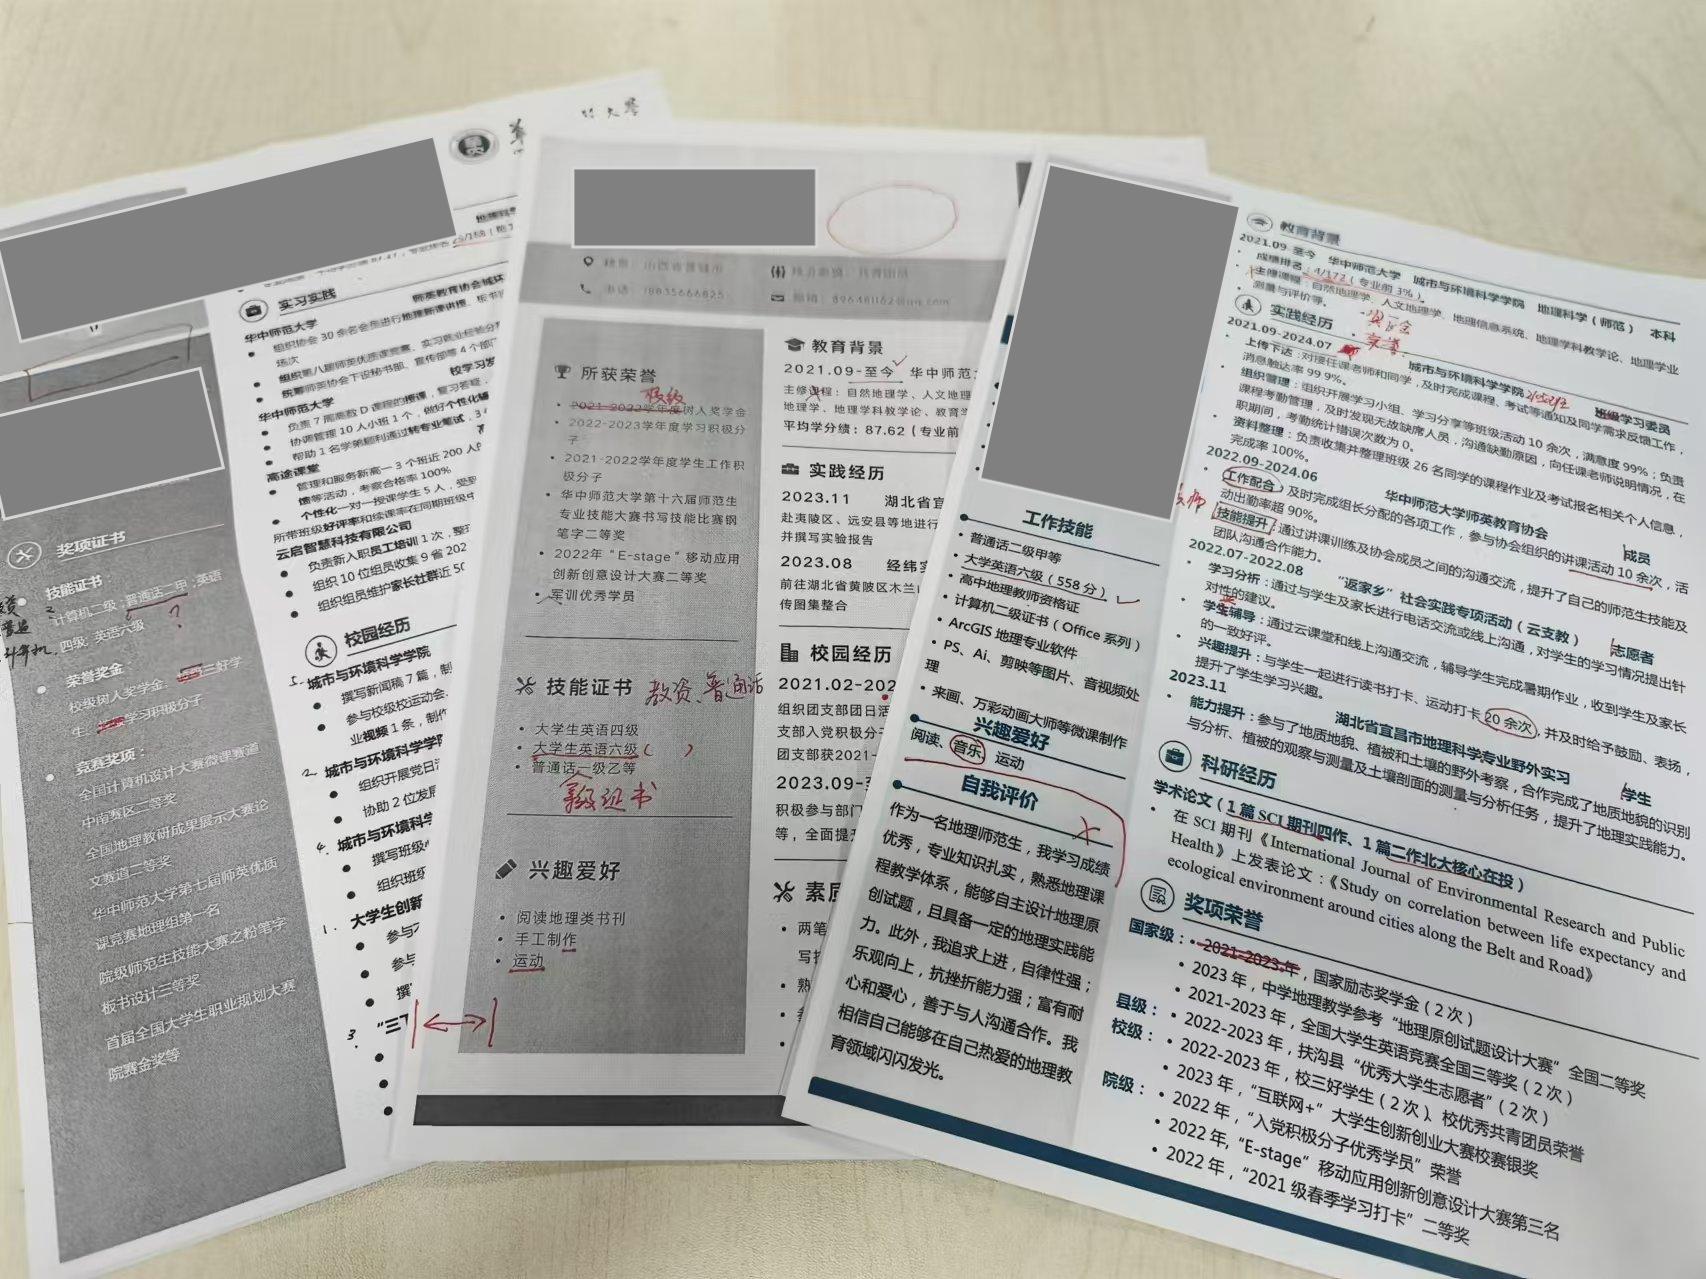 实习实践
华中师范大学
组织协会30余名会员进行地理新课讲授、板书
场次
组织第八届师英优质课竞赛、实习就业经验分
统筹师英协会下设秘书部、宣传部等4个部门
华中师范大学
负责7周高数D课程的授课，复习答疑，
协调管理10人小班1个，做好个性化辅
帮助1名学弟顺利通过转专业笔试，3
高途课堂
管理和服务新高一3个班近200人的
馈等活动，考察合格率100%
个性化一对一授课学生5人，受到
所带班级好评率和续课率在同期班级中
云启智慧科技有限公司
负责新入职员工培训1次，整理
组织10位组员收集9省202
组织组员维护家长社群近50
校园经历
城市与环境科学学院
撰写新闻稿7篇，制
参与校级校运动会
业视频1条，制作
城市与环境科学学院
组织开展党日活
协助2位发展
城市与环境科学
撰写班级
组织班级
大学生创新
参与
参与
撰
“三下
奖项证书
技能证书
计算机二级；普通话二甲；英语
四级；英语六级
荣誉奖金
校级树人奖学金；三好学
生；学习积极分子
竞赛奖项：
全国计算机设计大赛微课赛道
中南赛区二等奖
全国地理教研成果展示大赛论
文赛道二等奖
华中师范大学第七届师英优质
课竞赛地理组第一名
院级师范生技能大赛之粉笔字
板书设计三等奖
首届全国大学生职业规划大赛
院赛金奖等
所获荣誉
校级
2021-2022学年度树人奖学金
2022-2023学年度学习积极分
子
2021-2022学年度学生工作积
极分子
华中师范大学第十六届师范生
专业技能大赛书写技能比赛钢
笔字二等奖
2022年“E-stage”移动应用
创新创意设计大赛二等奖
军训优秀学员
技能证书
教资 普通话
大学生英语四级
大学生英语六级( )
普通话一级乙等
等级证书
兴趣爱好
阅读地理类书刊
手工制作
运动
教育背景
2021.09-至今 华中师范
主修课程：自然地理学、人文地理
地理学、地理学科教学论、教育学
平均学分绩：87.62（专业前
实践经历
2023.11 湖北省宜
赴夷陵区、远安县等地进行
并撰写实验报告
2023.08 经纬实
前往湖北省黄陂区木兰
传图集整合
校园经历
2021.02-202
组织团支部团日活
支部入党积极分子
团支部获2021-
2023.09-至
积极参与部门
等，全面提升
两笔
工作技能
普通话二级甲等
大学英语六级（558分）
高中地理教师资格证
计算机二级证书（Office系列）
ArcGIS地理专业软件
PS、Ai、剪映等图片、音视频处
理
来画、万彩动画大师等微课制作
兴趣爱好
阅读、音乐、运动
自我评价
作为一名地理师范生，我学习成绩
优秀，专业知识扎实，熟悉地理课
程教学体系，能够自主设计地理原
创试题，且具备一定的地理实践能
力。此外，我追求上进，自律性强；
乐观向上，抗挫折能力强；富有耐
心和爱心，善于与人沟通合作。我
相信自己能够在自己热爱的地理教
育领域闪闪发光。
教育背景
2021.09 至今 华中师范大学 城市与环境科学学院 地理科学（师范） 本科
成绩排名：4/172（专业前3%）。
主修课程：自然地理学、人文地理学、地理信息系统、地理学科教学论、地理学业
测量与评价等。
实践经历
2021.09-2024.07 城市与环境科学学院 班级学习委员
上传下达：对接任课老师和同学，及时完成课程、考试等通知及同学需求反馈工作，
消息触达率99.9%。
组织管理：组织开展学习小组、学习分享等班级活动10余次，满意度99%；负责
课程考勤管理，及时发现无故缺席人员，沟通缺勤原因，向任课老师说明情况，在
职期间，考勤统计错误次数为0。
资料整理：负责收集并整理班级26名同学的课程作业及考试报名相关个人信息，
完成率100%。
2022.09-2024.06 华中师范大学师英教育协会 成员
工作配合：及时完成组长分配的各项工作，参与协会组织的讲课活动10余次，活
动出勤率超90%。
技能提升：通过讲课训练及协会成员之间的沟通交流，提升了自己的师范生技能及
团队沟通合作能力。
2022.07-2022.08 “返家乡”社会实践专项活动（云支教） 志愿者
学习分析：通过与学生及家长进行电话交流或线上沟通，对学生的学习情况提出针
对性的建议。
学生辅导：通过云课堂和线上沟通交流，辅导学生完成暑期作业，收到学生及家长
的一致好评。
兴趣提升：与学生一起进行读书打卡、运动打卡20余次，并及时给予鼓励、表扬，
提升了学生学习兴趣。
2023.11 湖北省宜昌市地理科学专业野外实习 学生
能力提升：参与了地质地貌、植被和土壤的野外考察，合作完成了地质地貌的识别
与分析、植被的观察与测量及土壤剖面的测量与分析任务，提升了地理实践能力。
科研经历
学术论文（1篇SCI期刊四作、1篇二作北大核心在投）
在SCI期刊《International Journal of Environmental Research and Public
Health》上发表论文：《Study on correlation between life expectancy and
ecological environment around cities along the Belt and Road》
奖项荣誉
国家级：2021-2023年，国家励志奖学金（2次）
2023年，中学地理教学参考“地理原创试题设计大赛”全国二等奖
2021-2023年，全国大学生英语竞赛全国三等奖（2次）
县级：2022-2023年，扶沟县“优秀大学生志愿者”（2次）
校级：2022-2023年，校三好学生（2次）、校优秀共青团员荣誉
2023年，“互联网+”大学生创新创业大赛校赛银奖
院级：2022年，“入党积极分子优秀学员”荣誉
2022年，“E-stage”移动应用创新创意设计大赛第三名
2022年，“2021级春季学习打卡”二等奖